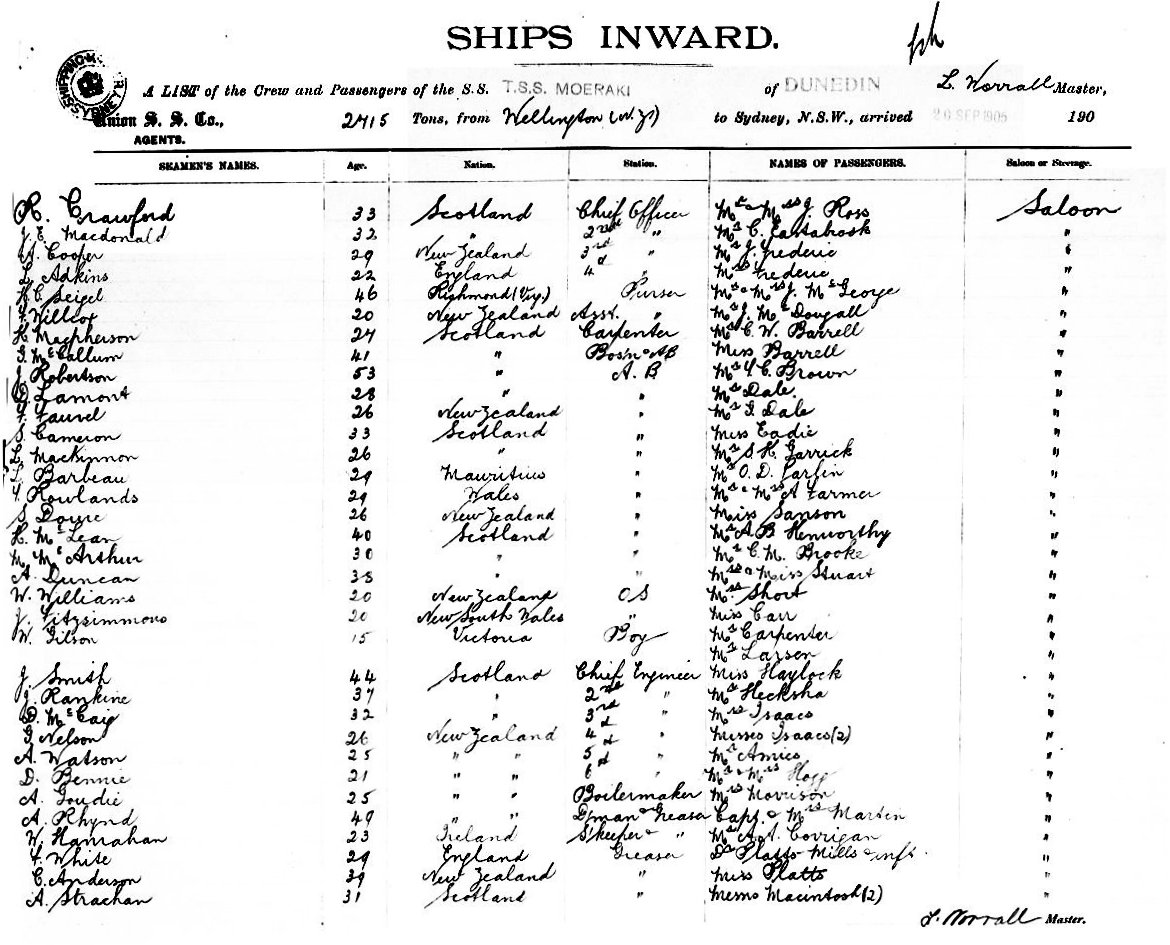 SHIPS INWARD.
SHIPPING MASTER SYDNEY
A LIST of the Crew and Passengers of the S.S. T.S.S. MOERAKI of DUNEDIN L. Worrall Master,
Union S. S. Co., 2715 Tons, from Wellington (N.Z.) to Sydney, N.S.W., arrived 20 SEP 1905 190
AGENTS.
SEAMEN'S NAMES. Age. Nation. Station. NAMES OF PASSENGERS. Saloon or Steerage.
R. Crawford 33 Scotland Chief Officer Mr & Mrs J. Ross Saloon
J. E. Macdonald 32 " 2nd " Mr C. Eastabrook "
Cooper 29 New Zealand 3rd " Mr J. Frederic "
L. Adkins 22 England 4 " Mrs Frederic "
Seigel 46 Richmond (Vic.) Purser Mr & Mrs J. McGeorge "
Willcox 20 New Zealand Asst. " Mr J. McDougall "
H. Macpherson 27 Scotland Carpenter Mr C. W. Barrell "
McCallum 41 " Bos'n & AB Miss Barrell "
J. Robertson 53 " A. B Brown "
D. Lamont 28 " " Mrs Dale. "
Laurel 26 New Zealand " Dale "
S. Cameron 33 Scotland " Miss Eadie "
L. Mackinnon 26 " " Mr S. H. Garrick "
Barbeau 29 Mauritius " Mr O. D. "
Rowlands 29 Wales " Mr & Mrs A Farmer "
S. 26 New Zealand " Miss Sanson "
H. McLean 40 Scotland " Mr A. B. Henworthy "
M. McArthur 30 " " Mr C. M. Brooke "
A. Duncan 38 " " Mrs & Miss Stuart "
W. Williams 20 New Zealand OS Short "
J. Fitzsimmons 20 New South Wales " Miss Carr "
W. Gilson 15 Victoria Boy Mr Carpenter "
Mr Larsen "
J. Smith 44 Scotland Chief Engineer Miss Haylock "
J. Rankine 37 " 2nd " Mr Hecksha "
D. McCaig 32 " 3rd " Mrs Isaacs "
Nelson 26 New Zealand 4 " Misses Isaacs (2) "
A. Watson 25 " " 5 " Mr Amies "
D. Bennie 21 " " 6 " Mr & Mrs Hogg "
A. Goudie 25 " " Boilermaker Mrs Morrison "
A. Rhynd 49 " " D/man & Greaser Capt. & Mrs Martin "
W. Hanrahan 23 Ireland S'keeper & " Corrigan "
White 29 England Greaser Dr Platts Mills & inft. "
C. Anderson 39 New Zealand " Miss Platts "
A. Strachan 31 Scotland " Macintosh (2) "
L. Worrall Master.